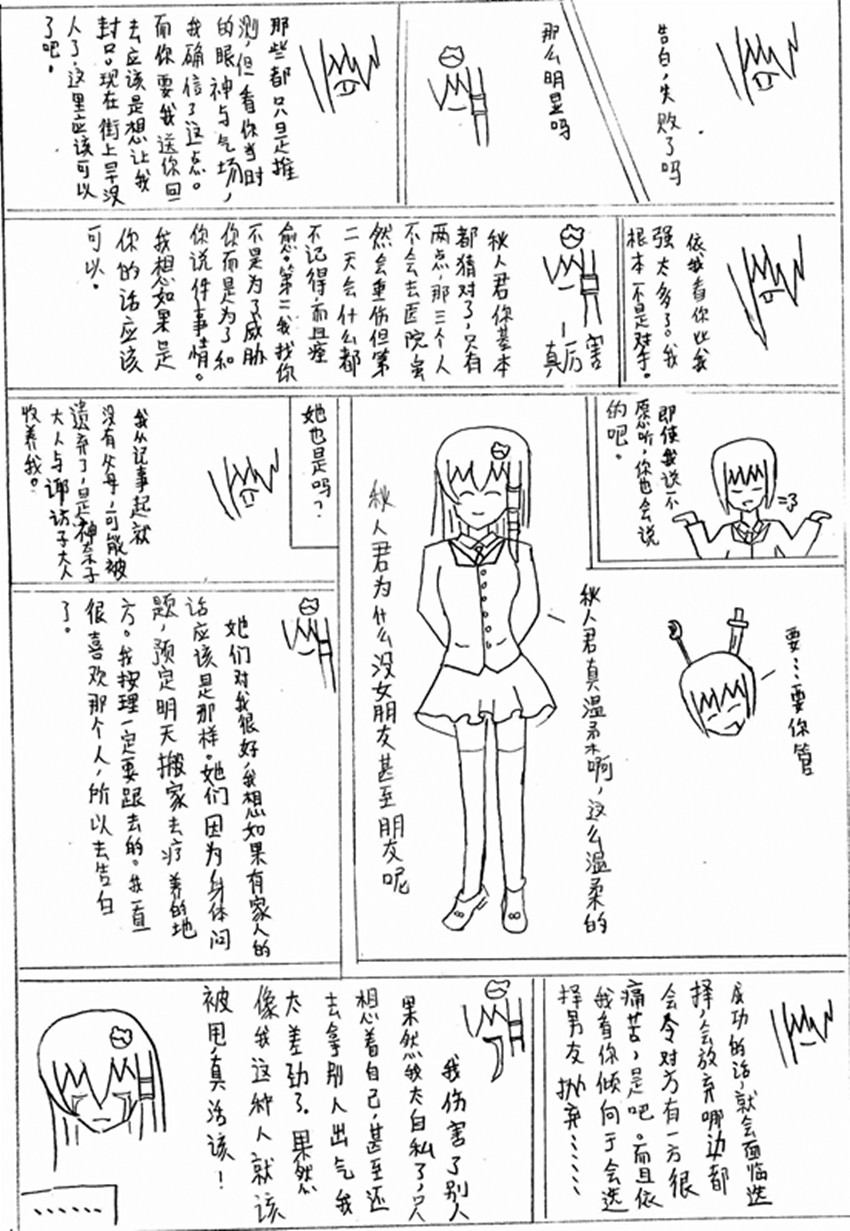 告白，失败了吗
那么明显吗
那些都只是推
测，但看你当时
的眼神与气场，
我确信了这点。
而你要我送你回
去应该是想让我
封口。现在街上早没
人了，这里应该可以
了吧。
依我看你比我
强太多了。我
根本不是对手。
真厉害
秋人君你基本
都猜对了，只有
两点，那三个人
不会去医院，虽
然会重伤但第
二天会什么都
不记得，而且痊
愈。第二我找你
不是为了威胁
你而是为了和
你说件事情。
我想如果是
你的话应该
可以。
即使我说不
愿听，你也会说
的吧。
秋人君真温柔啊，这么温柔的
秋人君为什么没女朋友甚至朋友呢
要……要你管
她也是吗？
我从记事起就
没有父母，可能被
遗弃了，是神奈子
大人与诹访子大人
收养我。
她们对我很好，我想如果有家人的
话应该是那样。她们因为身体问
题，预定明天搬家去疗养的地
方。我按理一定要跟去的。我一直
很喜欢那个人，所以去告白
了。
成功的话，就会面临选
择，会放弃哪边都
会令对方有一方很
痛苦，是吧。而且依
我看你倾向于会选
择男友抛弃……
我伤害了别人
果然我太自私了，只
想着自己，甚至还
去拿别人出气我
太差劲了。果然
像我这种人就该
被甩，真活该！
……